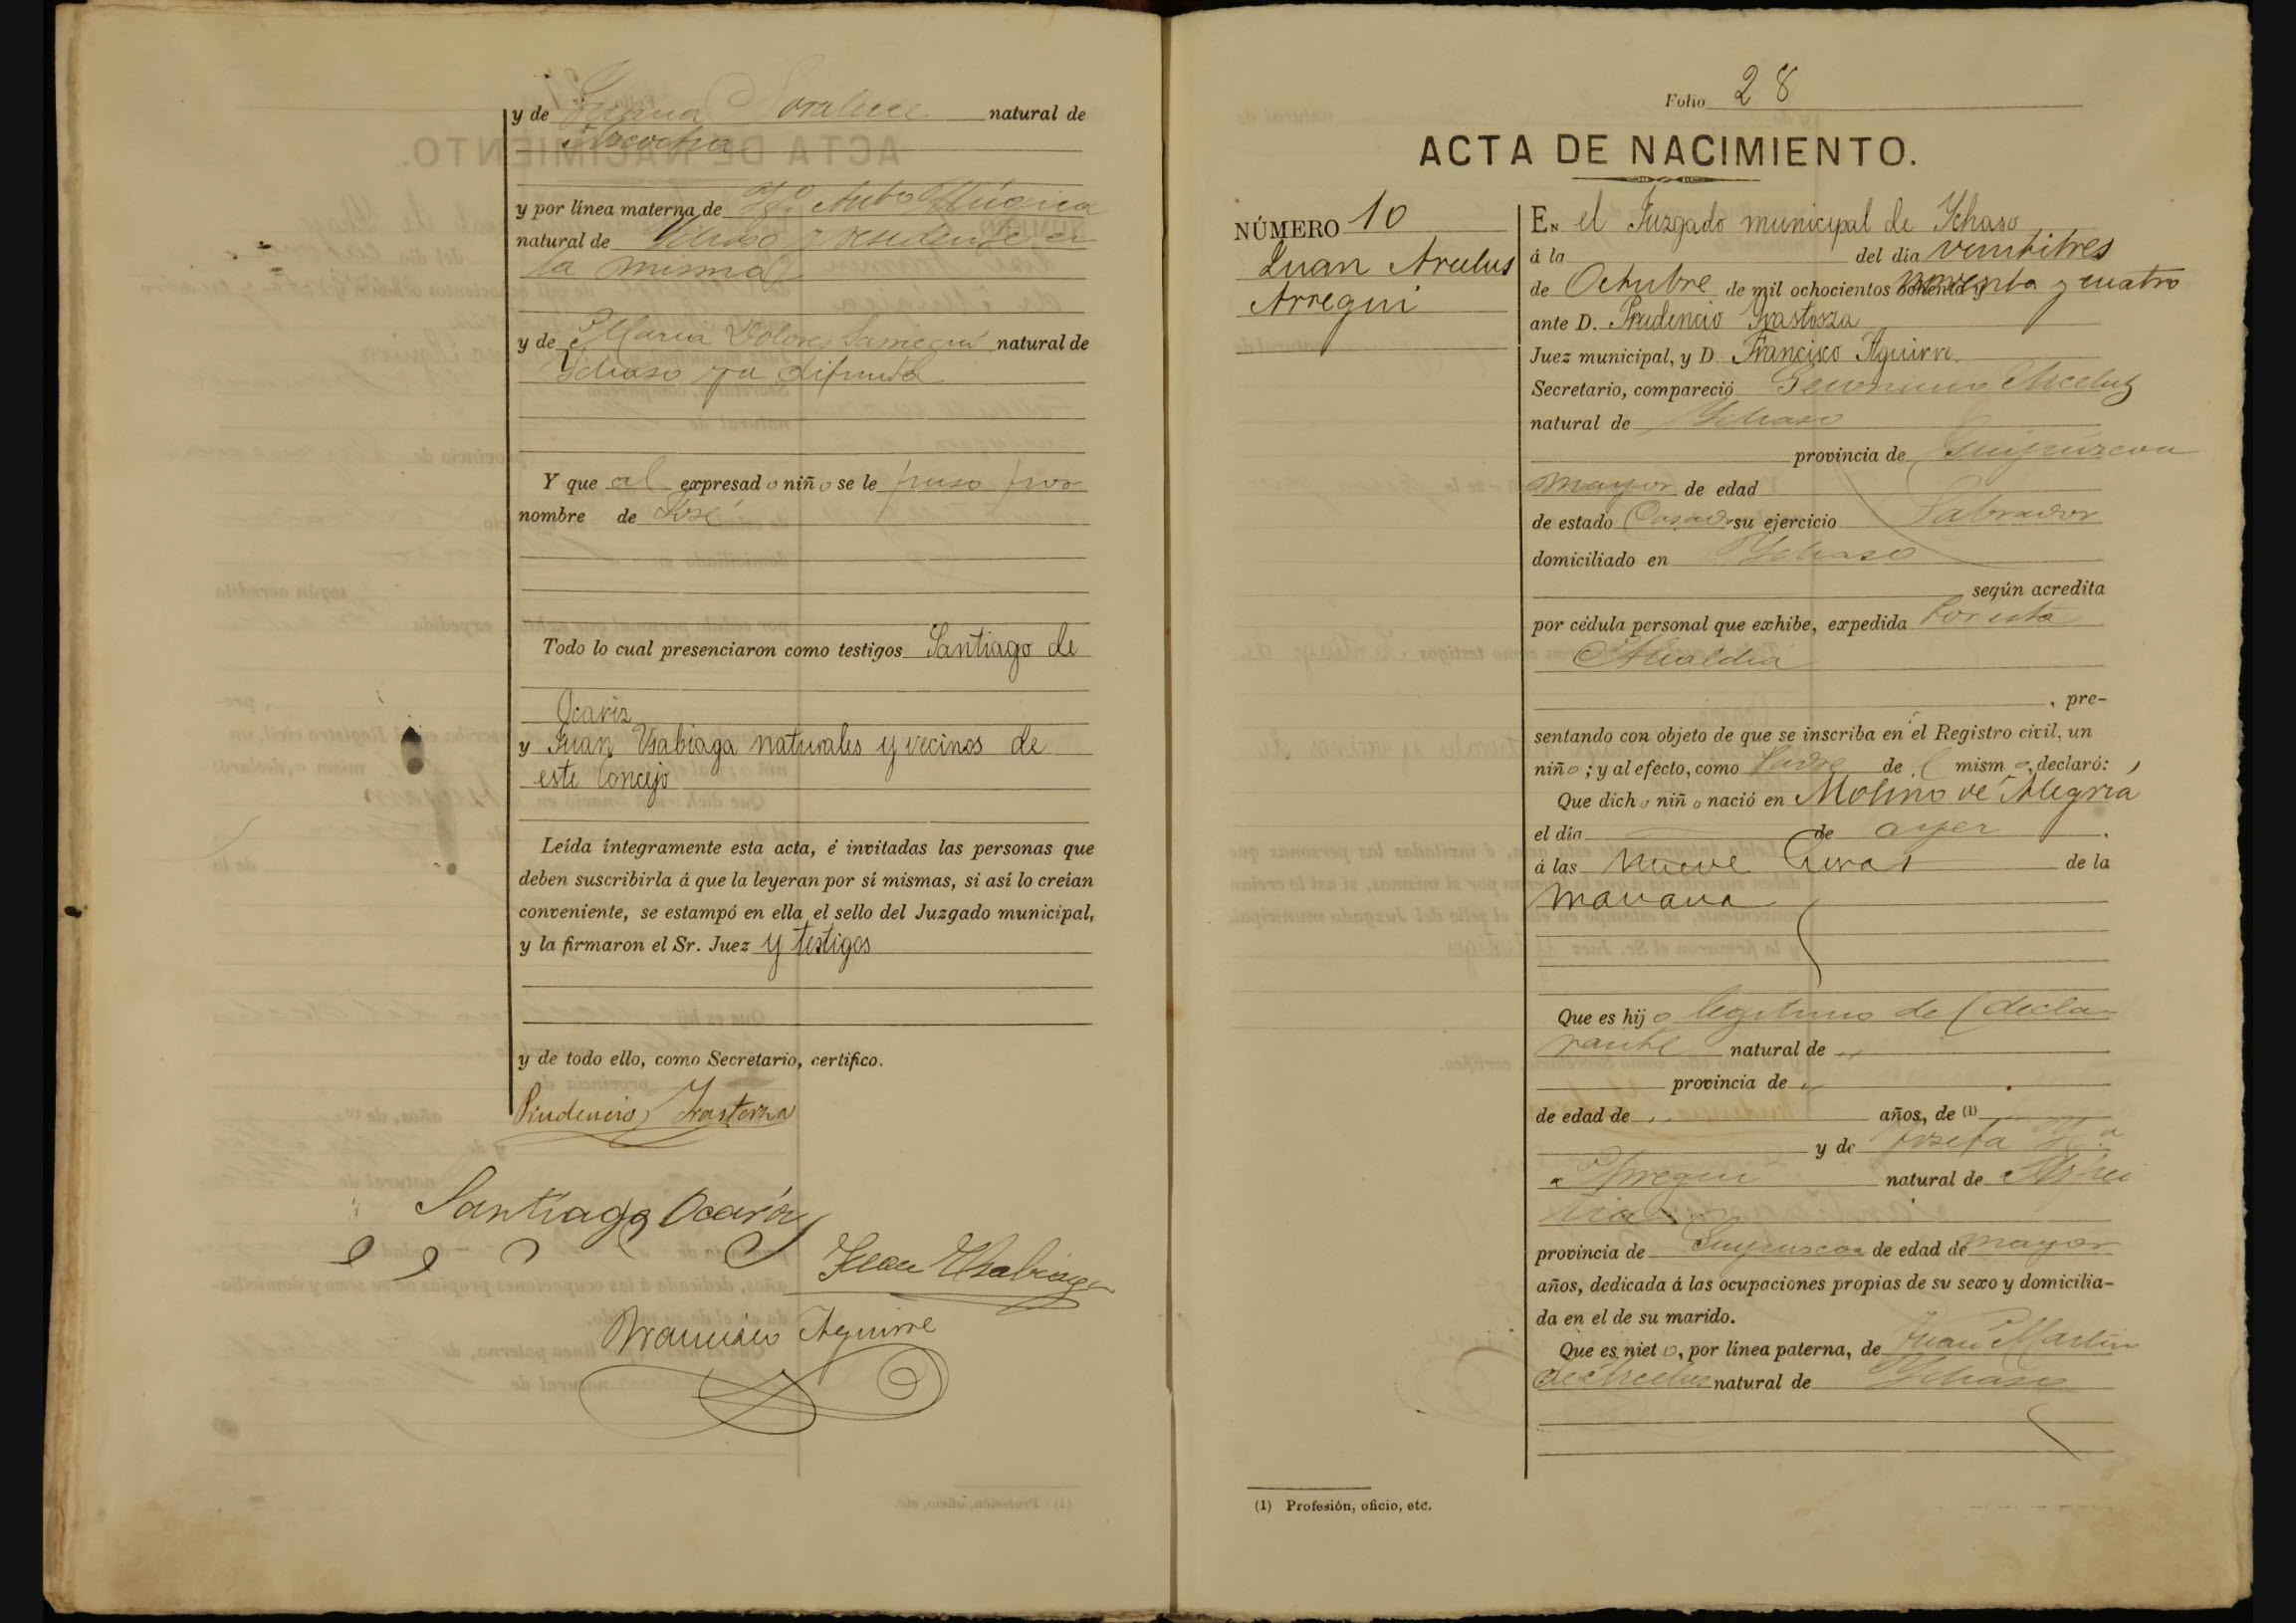 y de Juana Soraluce natural de
Azcoitia
y por línea materna de Jo. Anto Múgica
natural de Ychaso y residente en
la misma
y de Maria Dolores natural de
Ychaso ya difunta
Y que al expresado niño se le puso por
nombre de José
Todo lo cual presenciaron como testigos Santiago de
Ocariz
y Juan Usabiaga naturales y vecinos de
este Concejo
Leída íntegramente esta acta, é invitadas las personas que
deben suscribirla á que la leyeran por sí mismas, si así lo creían
conveniente, se estampó en ella el sello del Juzgado municipal,
y la firmaron el Sr. Juez y testigos
y de todo ello, como Secretario, certifico.
Prudencio Yrastorza
Santiago Ocariz
Juan Usabiaga
Francisco Aguirre
Folio 28
ACTA DE NACIMIENTO.
NÚMERO 10
Juan Arcelus
Arregui
En el Juzgado municipal de Ychaso
á la del dia veintitres
de Octubre de mil ochocientos noventa y cuatro
ante D. Prudencio Yrastorza
Juez municipal, y D. Francisco Aguirre.
Secretario, compareció Geronimo Arceluz
natural de Ychaso
provincia de Guipúzcoa
mayor de edad
de estado Casado su ejercicio Labrador
domiciliado en Ychaso
según acredita
por cédula personal que exhibe, expedida por esta
Alcaldia
, pre-
sentando con objeto de que se inscriba en el Registro civil, un
niño; y al efecto, como Padre del mismo, declaró:
Que dicho niño nació en Molino de Alegria
el día de ayer.
á las nueve horas de la
manana
Que es hijo legitimo del decla-
rante natural de "
provincia de "
de edad de " años, de (1)
y de Josefa Ma.
Arregui natural de Azpei
tia
provincia de Guipuzcoa de edad de mayor
años, dedicada á las ocupaciones propias de su sexo y domicilia-
da en el de su marido.
Que es nieto, por línea paterna, de Juan Martin
de Arcelus natural de Ychaso
(1) Profesión, oficio, etc.